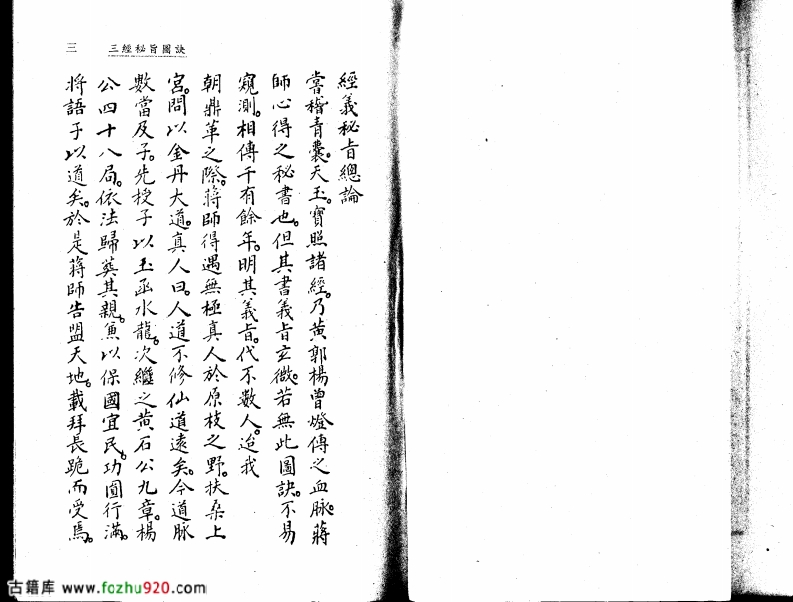 三經秘旨圖訣
三
經義秘旨總論
嘗稽青囊。天玉。寶照諸經。乃黃郭楊曾燈傳之血脉。蔣
師心得之秘書也。但其書義旨玄微。若無此圖訣。不易
窺測。相傳千有餘年。明其義旨。代不數人。迨我
朝鼎革之際。蔣師得遇無極真人於原枝之野。扶桑上
宮。問以金丹大道。真人曰。人道不修仙道遠矣。今道脉
數當及子。先授子以玉函水龍。次繼之黃石公九章。楊
公四十八局。依法歸葬其親。兼以保國宜民。功圓行滿。
將語子以道矣。於是蔣師告盟天地。載拜長跪而受焉。
古籍库 www.fozhu920.com